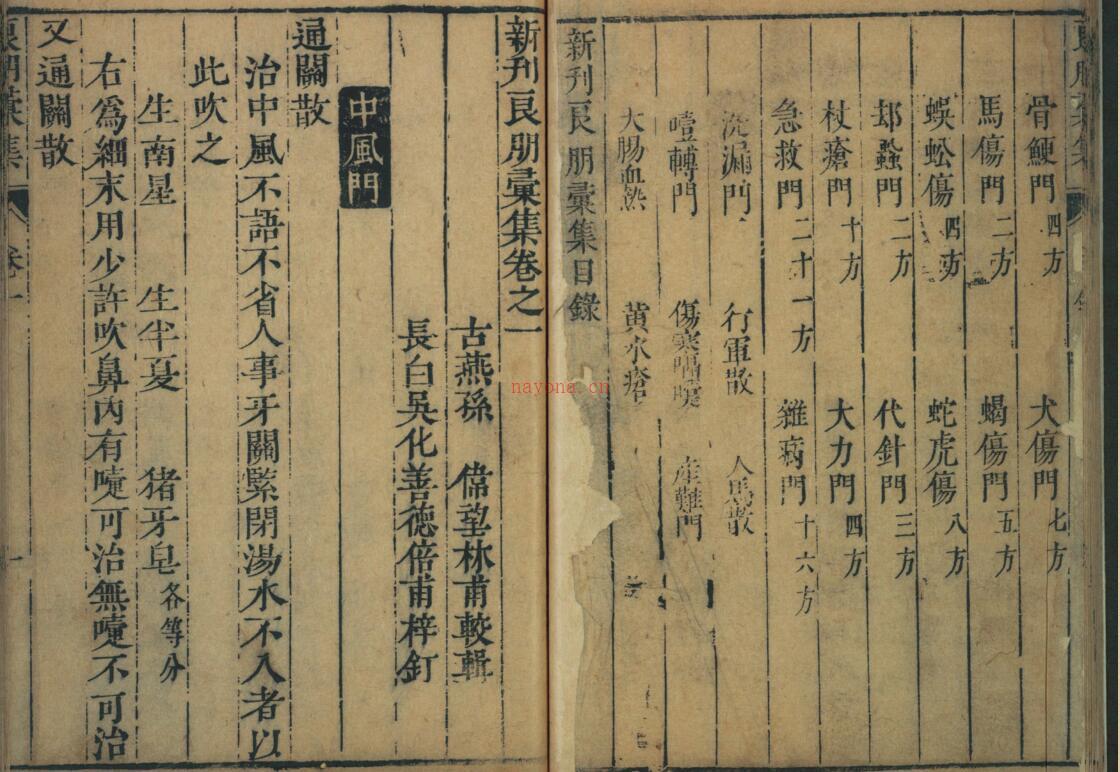 骨鯁門 四方 犬傷門 七方
馬傷門 二方 蝎傷門 五方
蜈蚣傷 四方 蛇虎傷 八方
邶蠚門 二方 代針門 三方
杖瘡門 十方 大力門 四方
急救門 二十一方 雜病門 十六方
漏門 行軍散 人馬散
轉門 傷寒 産難門
大腸血熱 黃水瘡
新刊良朋彙集目錄
新刊良朋彙集卷之一
古燕孫 偉望林甫較輯
長白吳化善德倍甫梓釘
中風門
通關散
治中風不語不省人事牙關緊閉湯水不入者以
此吹之
生南星 生半夏 猪牙皂 各等分
右爲細末用少許吹鼻內有嚏可治無嚏不可治
又通關散
良朋彙集 卷一 一
nayona.cn